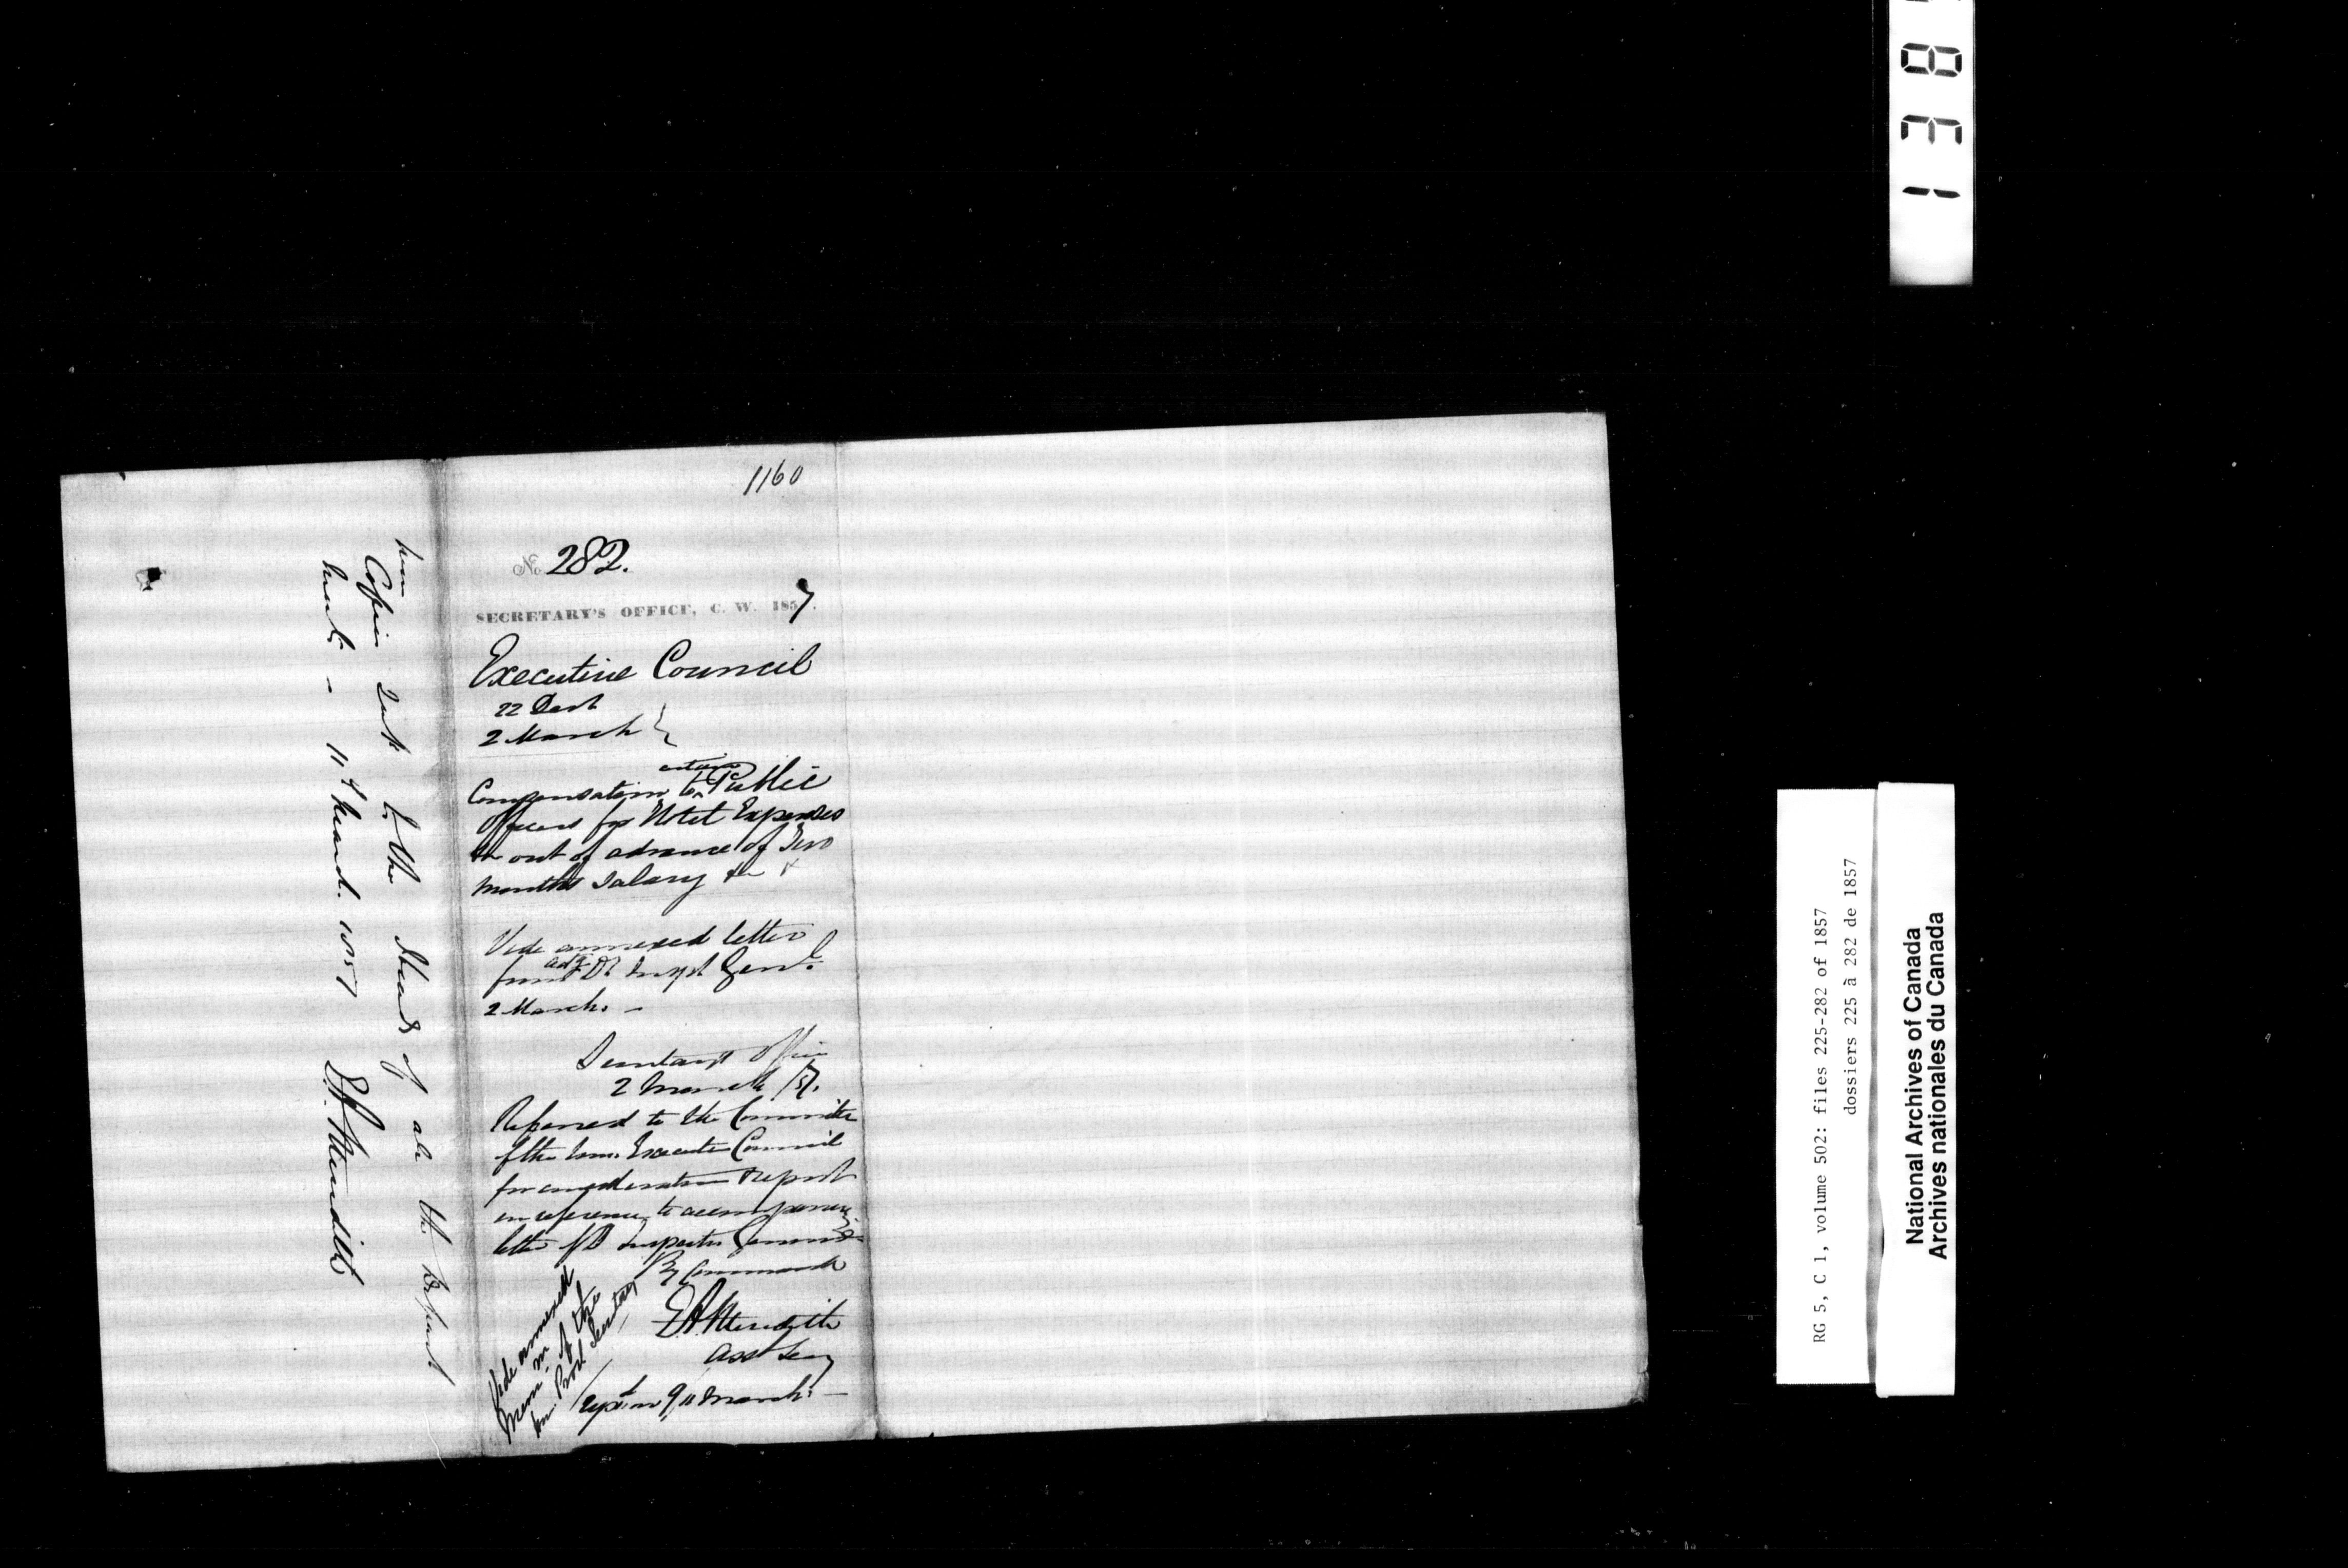 1160
No. 282.
SECRETARY'S OFFICE, C. W. 1857.
Executive Council
22 Dect
2 March
Compensation to certain Public
Officers for Hotel Expenses
&c out of advance of Two
months Salary &c
Vide annexed letter
from actg Dy Inspt Genl
2 March. —
Secretary's Office
2 March /57.
Referred to the Committee
of the Hon. Executive Council
for consideration & report
in reference to accompanying
letter of D Inspector General
By Command
E A Meredith
Asst Secy
Vide annexed
Memm of the
Hon. Provl Secretary
9/11 March. —
Copies sent to the Heads of all the Depart
ments - 11th March. 1857 E.A. Meredith
138
RG 5, C 1, volume 502: files 225-282 of 1857
dossiers 225 à 282 de 1857
National Archives of Canada
Archives nationales du Canada